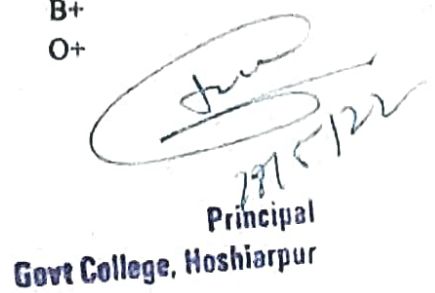 B+
O+
28/5/22
Principal
Govt College, Hoshiarpur